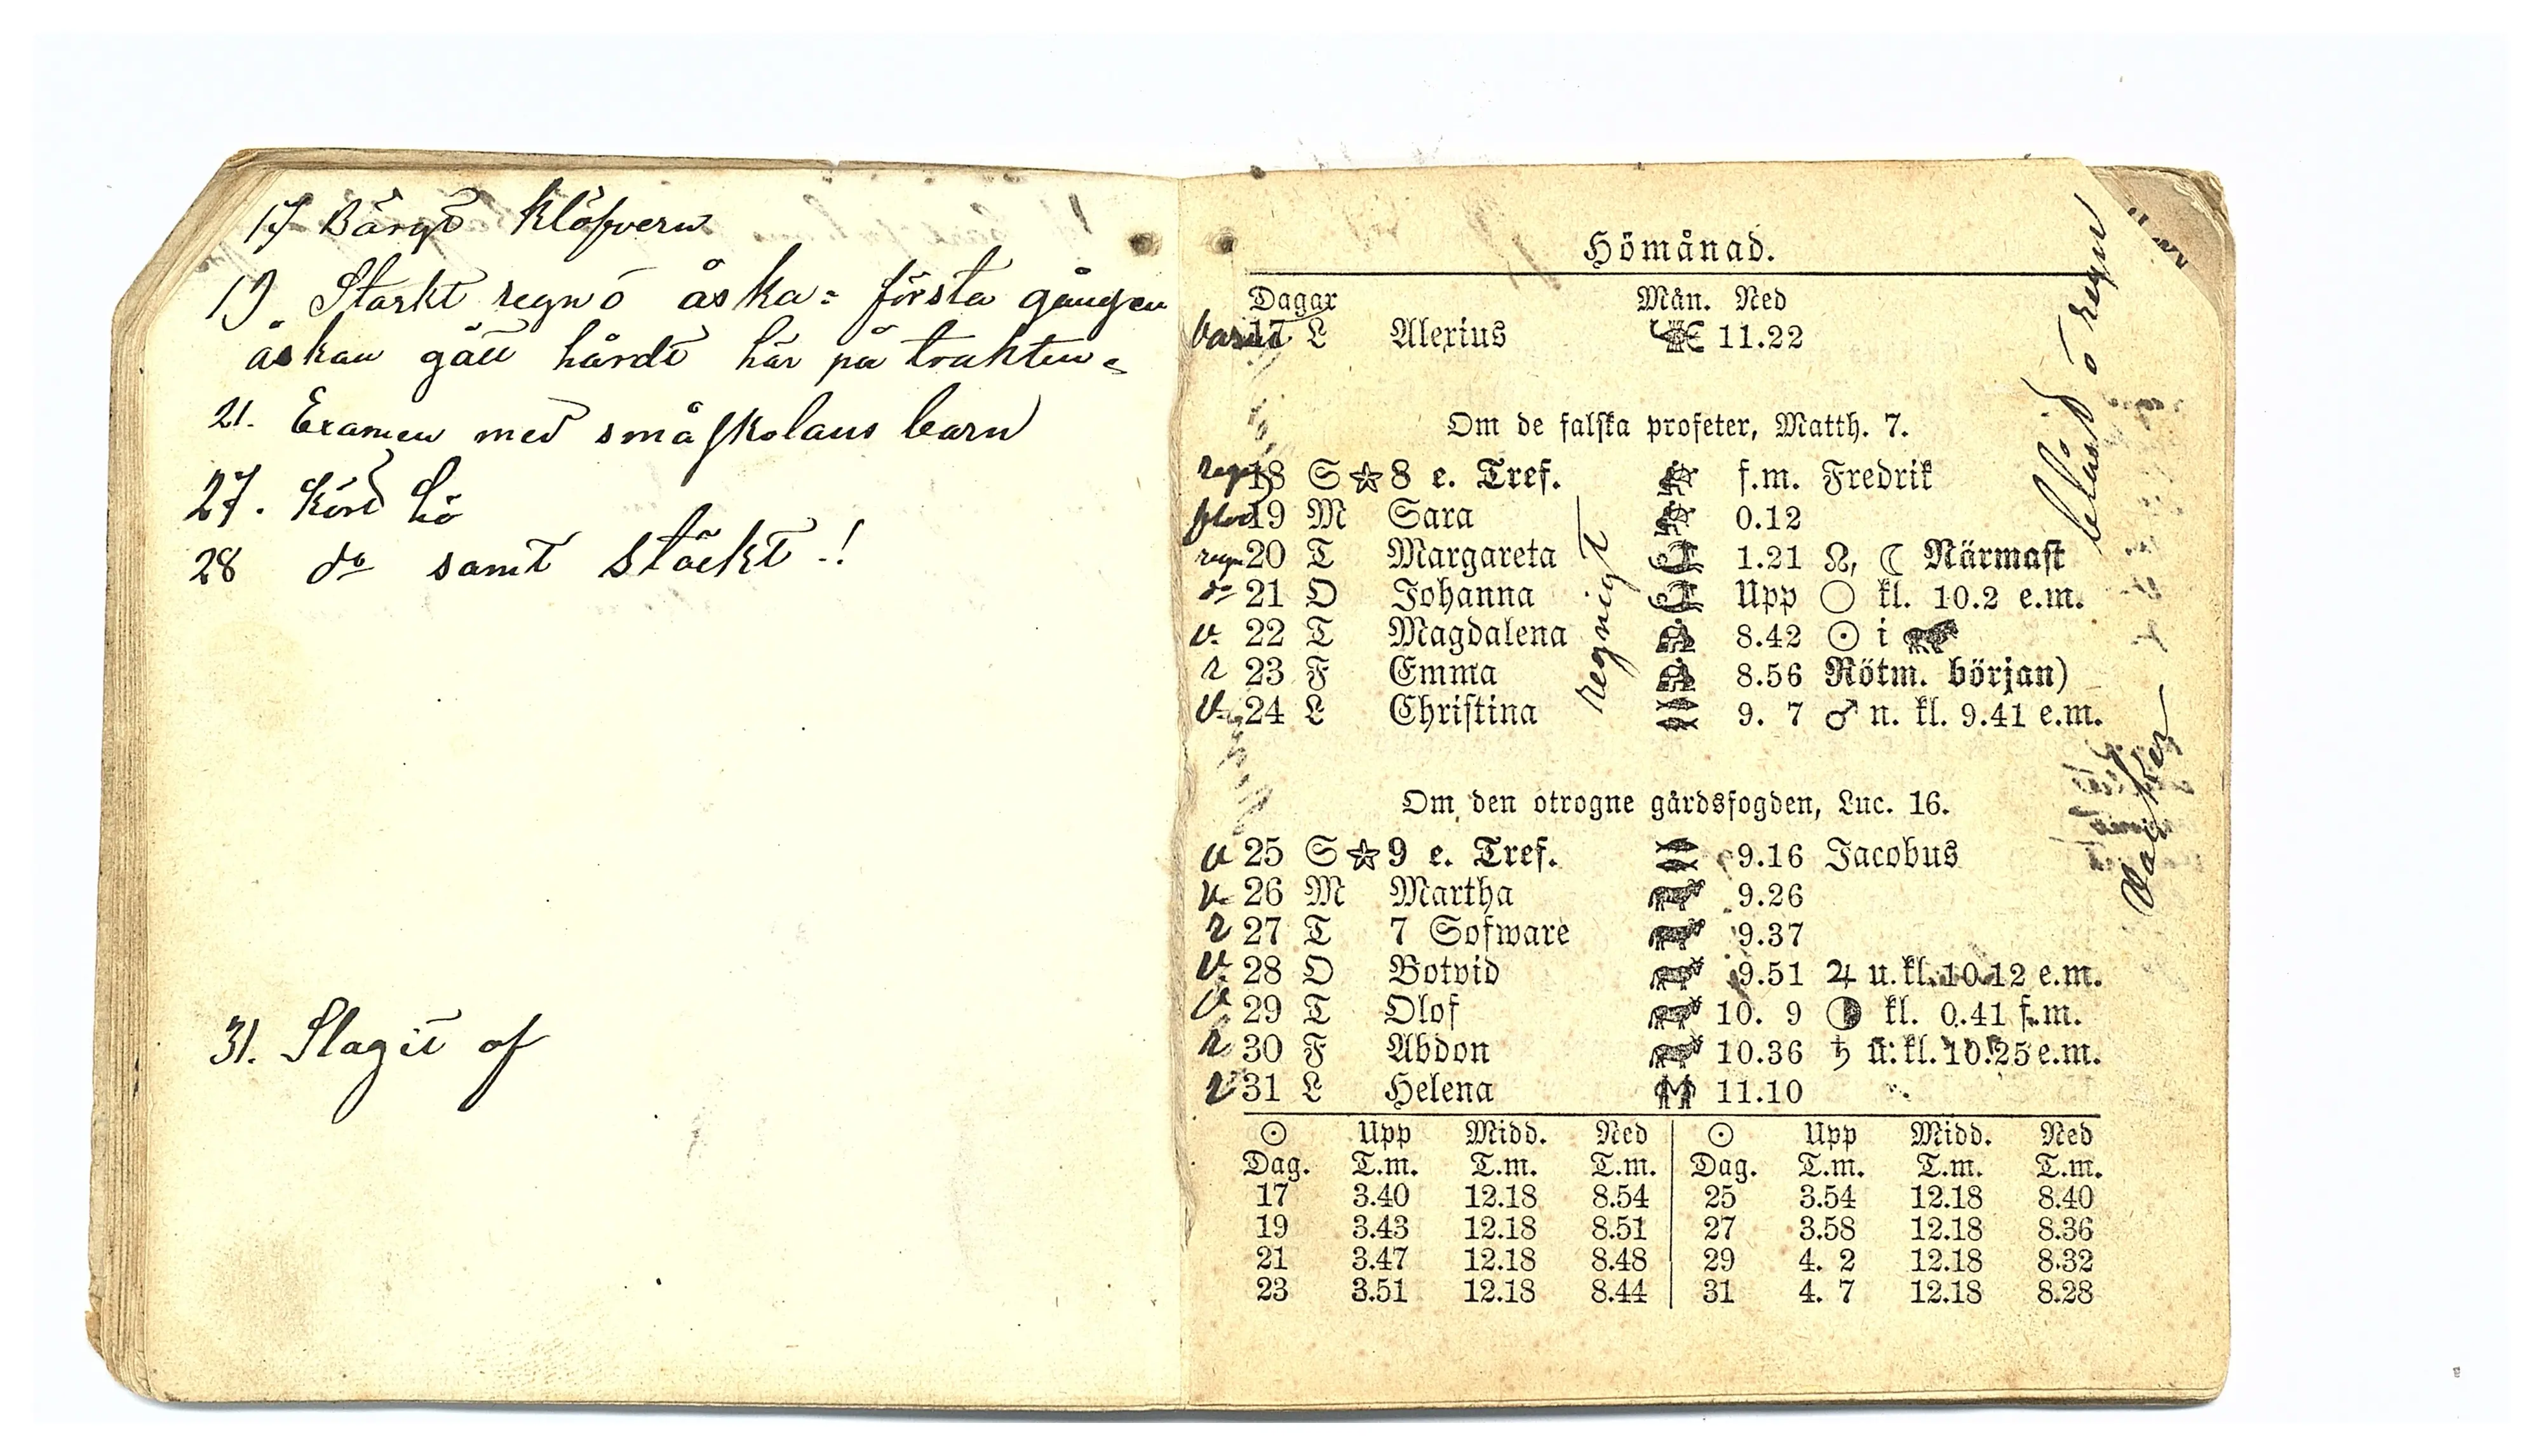 17 Bärgt Klöfvern
19 Starkt regn o åska = första gången
åskan gått hårdt här på trakten =
21. Examen med småskolans barn
27. Körd hö
28 do samt stäckt -!
31. Slagit af
Hömånad.
Dagar Mån. Ned
17 L Alexius 11.22
Om de falska profeter, Matth. 7.
regn 18 S ☆ 8 e. Tref. f.m. Fredrik
19 M Sara 0.12
regn 20 T Margareta 1.21 ☊, ☾ Närmast
do 21 O Johanna Upp ○ kl. 10.2 e.m.
v. 22 T Magdalena 8.42 ☉ i
r 23 F Emma 8.56 Rötm. början)
v. 24 L Christina 9. 7 ♂ n. kl. 9.41 e.m.
regnigt
Om den otrogne gårdsfogden, Luc. 16.
v 25 S ☆ 9 e. Tref. 9.16 Jacobus
v. 26 M Martha 9.26
r 27 T 7 Sofware 9.37
v. 28 O Botvid 9.51 ♃ u. kl. 10.12 e.m.
v 29 T Olof 10. 9 ◑ kl. 0.41 f.m.
r 30 F Abdon 10.36 ♄ u. kl. 10.25 e.m.
v 31 L Helena 11.10
blåst o regn
vacker
☉ Upp Midd. Ned ☉ Upp Midd. Ned
Dag. T.m. T.m. T.m. Dag. T.m. T.m. T.m.
17 3.40 12.18 8.54 25 3.54 12.18 8.40
19 3.43 12.18 8.51 27 3.58 12.18 8.36
21 3.47 12.18 8.48 29 4. 2 12.18 8.32
23 3.51 12.18 8.44 31 4. 7 12.18 8.28